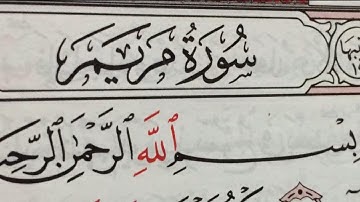 سُورَةُ مَرْيَمَ
بِسْمِ ٱللَّهِ ٱلرَّحْمَٰنِ